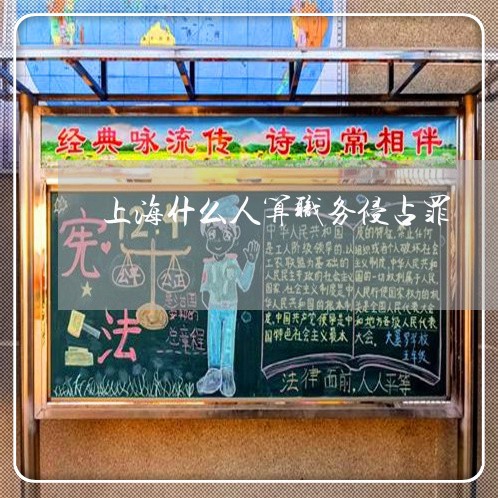 经典咏流传 诗词常相伴
上海什么人算职务侵占罪
宪法
12·4
公平
公正
中华人民共和国
是工人阶级领导的,以
工农联盟为基础的
人民民主专政的社会主义
国家,社会主义制度是中
华人民共和国的根本制
度,中国共产党领导是中
国特色社会主义最本
质的特征,禁止任何
组织或者个人破坏社会
主义制度,中华人民共和
国的一切权利属于人民,
人民行使国家权力的机
关是全国人民代表大会
和地方各级人民代表
大会。
五年级
总章程
法律面前,人人平等